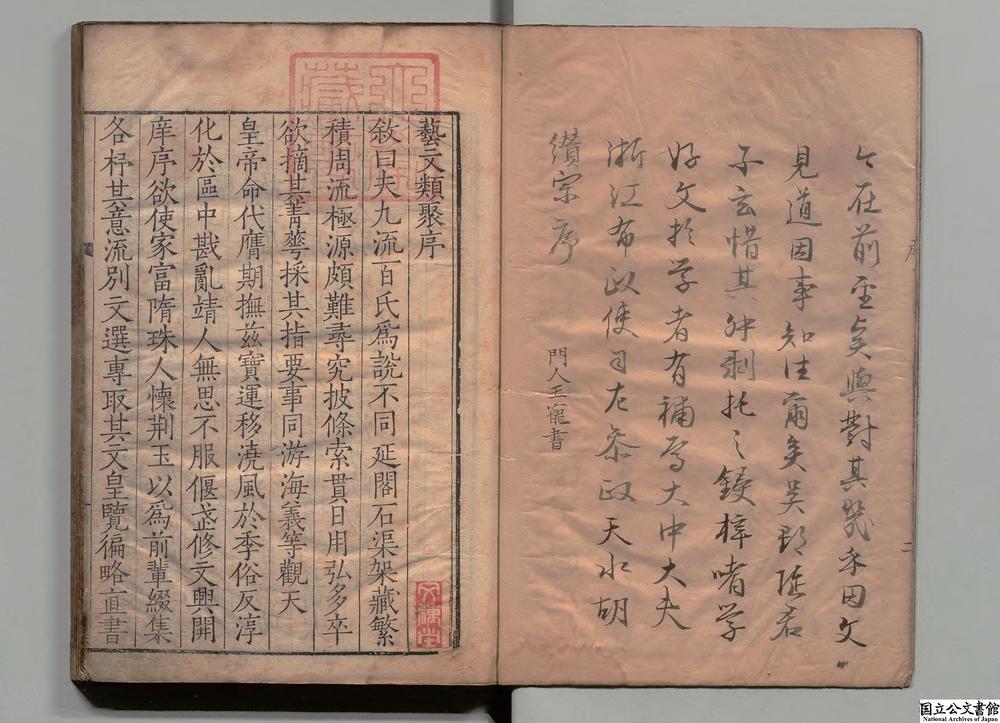 在前矣與對其幾乎因文
見道因事知往爾矣吳郡陸君
子玄惜其舛剥托之鋟梓嗜学
好文於学者有補焉大中大夫
浙江布政使司左參政天水胡
纘宗序
門人王寵書
序
二
藝文類聚序
敘曰夫九流百氏爲說不同延閣石渠架藏繁
積周流極源頗難尋究披條索貫日用弘多卒
欲摘其菁華採其指要事同游海義等觀天
皇帝命代膺期撫茲寶運移澆風於季俗反淳
化於區中戡亂靖人無思不服偃武修文興開
庠序欲使家富隋珠人懷荆玉以爲前輩綴集
各杼其意流別文選專取其文皇覽徧略直書
国立公文書館
National Archives of Japan